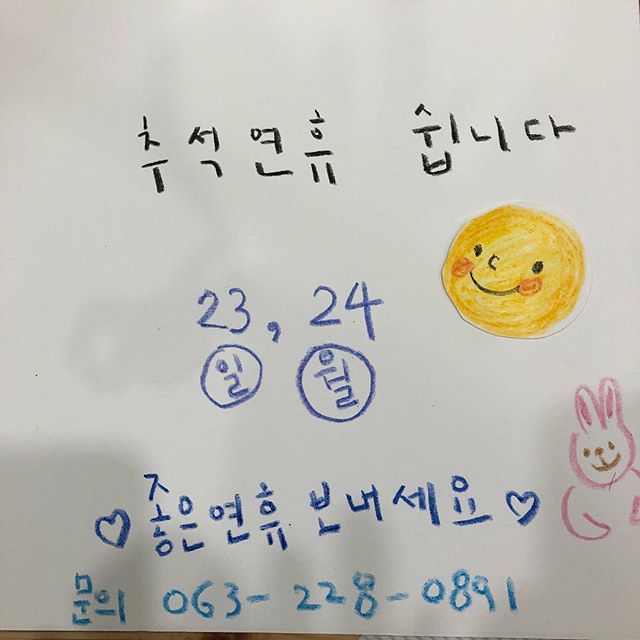 추석연휴 쉽니다
23, 24
일 월
♡좋은연휴 보내세요♡
문의 063-228-0891